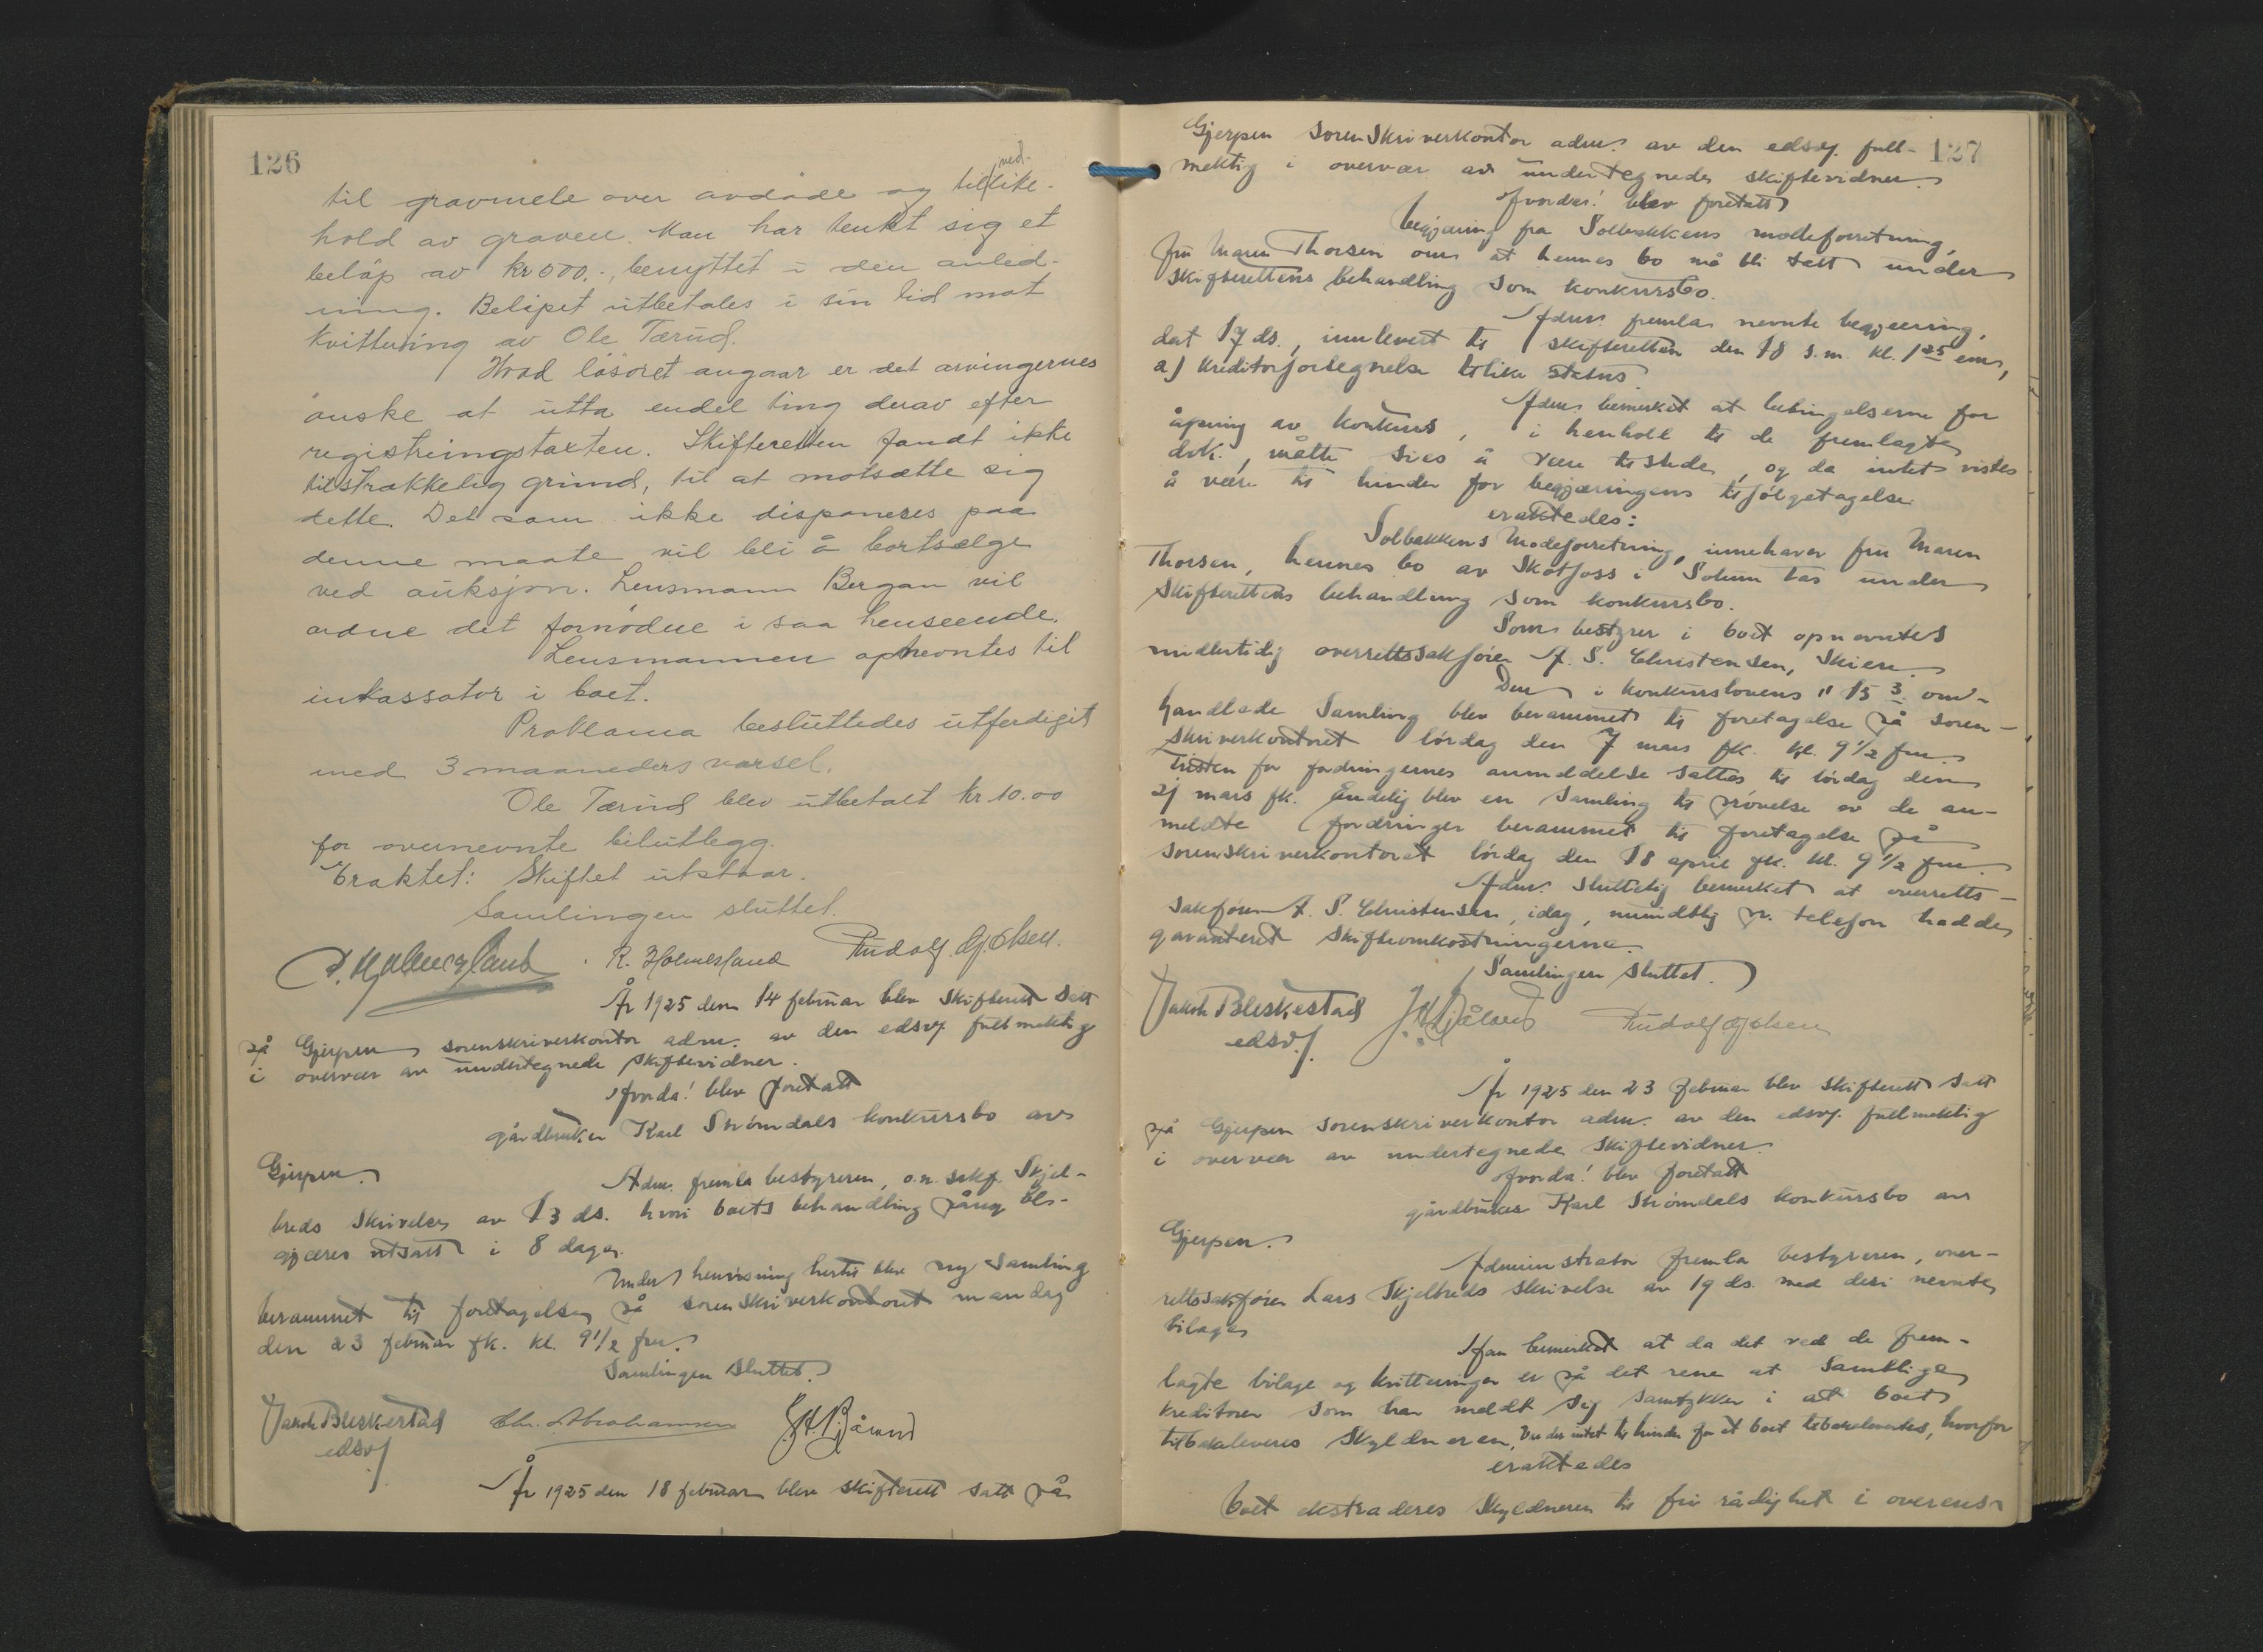 126
til gravmele over avdøde og til ved-
like-
hold av graven. Man har tenkt sig et
beløp av kr 500.-, benyttet i den anled-
ning. Beløpet utbetales i sin tid mot
kvittering av Ole Tærud.
Hvad løsøret angaar er det arvingernes
ønske at utta endel ting derav efter
registreringstaxten. Skifteretten fandt ikke
tilstrækkelig grund, til at motsætte sig
dette. Det som ikke disponeres paa
denne maate vil bli å bortsælge
ved auksjon. Lensmann Bergan vil
ordne det fornødne i saa henseende.
Lensmannen opnevntes til
inkassator i boet.
Proklama besluttedes utferdiget
med 3 maaneders varsel.
Ole Tærud blev utbetalt kr 10.00
for overnevnte bilutlegg.
Eraktet: Skiftet utstaar.
Samlingen sluttet.
R. Holmesland Rudolf Gj. Olsen.
År 1925 den 14 februar blev skifterett satt
på Gjerpen sorenskriverkontor adm. av den edsv. fullmektig
i overvær av undertegnede skiftevidner.
Hvorda! blev foretatt
gårdbruker Karl Strømdals konkursbo av
Gjerpen.
Adm. fremla bestyreren, o.r. sakf. Skjel-
breds skrivelse av 13 ds. hvori boets behandling påny be-
gjæres utsatt i 8 dager.
Under henvisning hertil blev ny samling
berammet til foretagelse på sorenskriverkontoret mandag
den 23 februar fk. kl. 9 1/2 fm.
Samlingen sluttet.
Jakob Bleskestad Chr. Abrahamsen
edsv.f
År 1925 den 18 februar blev skifterett satt på
127
Gjerpen sorenskriverkontor adm. av den edsv. full-
mektig i overvær av undertegnede skiftevidner.
Hvorda! blev foretatt
begjæring fra Solbakkens moteforretning,
fru Maren Thorsen om at hennes bo må bli satt under
skifterettens behandling som konkursbo.
Adm. fremla nevnte begjæring,
dat 17 ds., innlevert til skifteretten den 18 s.m. kl. 1 25 em,
a) kreditorfortegnelse tilike status.
Adm. bemerket at betingelserne for
åpning av konkurs, i henhold til de fremlagte
dok., måtte sies å være tilstede, og da intet vistes
å være til hinder for begjæringens tilfølgetagelse
eraktedes:
Solbakkens Moteforretning, innehaver fru Maren
Thorsen, hennes bo av Skotfoss i Solum tas under
skifterettens behandling som konkursbo.
Som bestyrer i boet opnevntes
midlertidig overrettssakfører A. S. Christensen, Skien.
Den i konkurslovens § 15 3. om-
handlede samling blev berammet til foretagelse på soren-
skriverkontoret lørdag den 7 mars fk. kl. 9 1/2 fm.
Fristen for fordringernes anmeldelse sattes til lørdag den
21 mars fk. Endelig blev en samling til prøvelse av de an-
meldte fordringer berammet til foretagelse på
sorenskriverkontoret lørdag den 18 april fk. kl. 9 1/2 fm.
Adm. sluttelig bemerket at overretts-
sakfører A. S. Christensen, idag, mundtlig pr. telefon hadde
garanteret skifteomkostningerne.
Samlingen sluttet.
Jakob Bleskestad Rudolf Gj. Olsen
edsv.f.
År 1925 den 23 februar blev skifterett satt
på Gjerpen sorenskriverkontor adm. av den edsv. fullmektig
i overvær av undertegnede skiftevidner.
Hvorda! blev foretatt
gårdbruker Karl Strømdals konkursbo av
Gjerpen.
Administrator fremla bestyreren, over-
rettssakfører Lars Skjelbreds skrivelse av 19 ds. med deri nevnte
bilage
Han bemerket at da det ved de frem-
lagte bilage og kvitteringer er på det rene at samtlige
kreditorer som har meldt sig samtykker i at boet
tilbakeleveres skyldneren, var der intet til hinder for at boet tilbakeleveres, hvorfor
eraktedes
boet ekstraderes skyldneren til fri rådighet i overens-